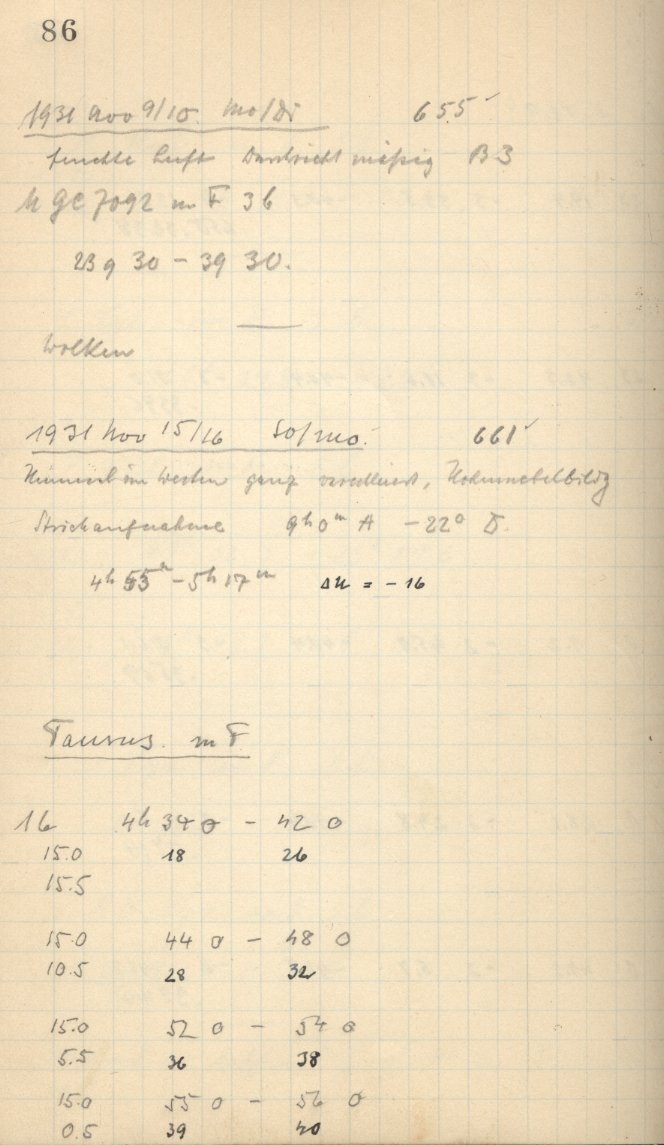 86
1931 Nov 9/10. Mo/Di 655 ✓
feuchte Luft Durchsicht mäßig B3
NGC 7092 m F 36
23 9 30 - 39 30.
Wolken
1931 Nov 15/16 So/Mo. 661 ✓
Himmel im Westen ganz verschleiert, Hohennebelbildg
Strichaufnahme 9h 0m A -22° D.
4h 55m - 5h 17m Δu = - 16
Taurus. m F
16 4h 34 0 - 42 0
15.0 18 26
15.5
15.0 44 0 - 48 0
10.5 28 32
15.0 52 0 - 54 0
5.5 36 38
15.0 55 0 - 56 0
0.5 39 40